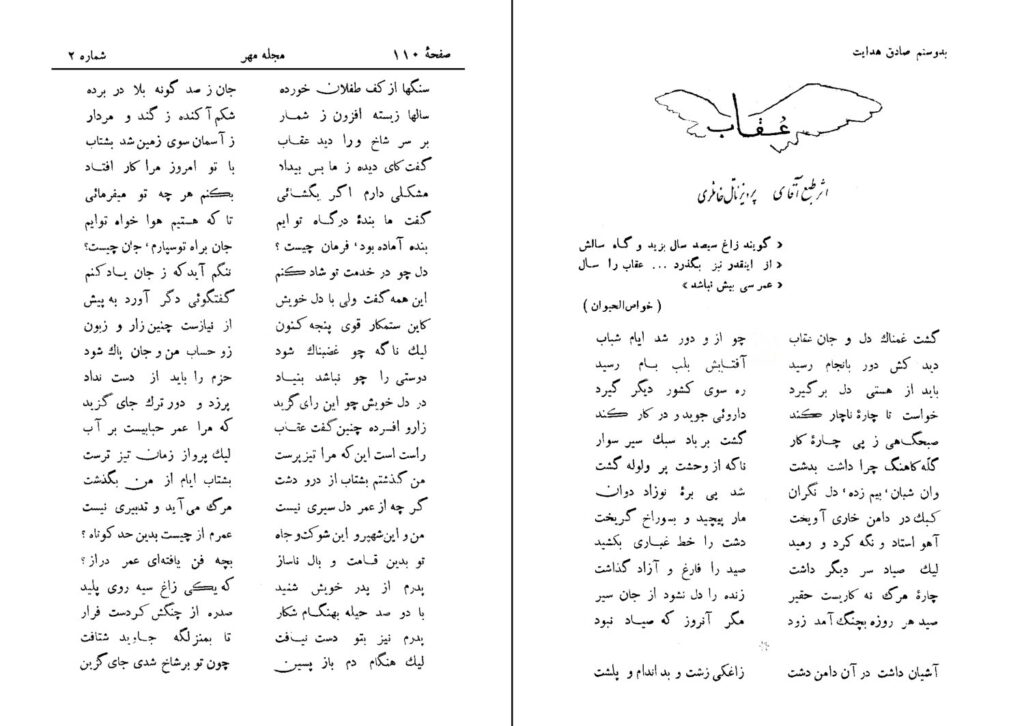 بدوستم صادق هدایت
عُقاب
اثر طبع آقای پرویز ناتل خانلری
« گویند زاغ سیصد سال بزید و گاه سالش
« از اینقدر نیز بگذرد ... عقاب را سال
« عمر سی بیش نباشد »
( خواص‌الحیوان )
گشت غمناك دل و جان عقاب چو از و دور شد ایام شباب
دید کش دور بانجام رسید آفتابش بلب بام رسید
باید از هستی دل بر گیرد ره سوی کشور دیگر گیرد
خواست تا چارهٔ ناچار کند داروئی جوید و در کار کند
صبحگاهی ز پی چارهٔ کار گشت بر باد سبك سیر سوار
گله کاهنگ چرا داشت بدشت ناگه از وحشت پر ولوله گشت
وان شبان، بیم زده، دل نگران شد پی برهٔ نوزاد دوان
کبك در دامن خاری آویخت مار پیچید و بسوراخ گریخت
آهو استاد و نگه کرد و رمید دشت را خط غباری بکشید
لیك صیاد سر دیگر داشت صید را فارغ و آزاد گذاشت
چارهٔ مرگ نه کاریست حقیر زنده را دل نشود از جان سیر
صید هر روزه بچنگ آمد زود مگر آنروز که صیاد نبود
آشیان داشت در آن دامن دشت زاغکی زشت و بد اندام و پلشت
صفحهٔ ۱۱۰ مجله مهر شماره ۲
سنگها از کف طفلان خورده جان ز صد گونه بلا در برده
سالها زیسته افزون ز شمار شکم آکنده ز گند و مردار
بر سر شاخ ورا دید عقاب ز آسمان سوی زمین شد بشتاب
گفت کای دیده ز ما بس بیداد با تو امروز مرا کار افتاد
مشکلی دارم اگر بگشائی بکنم هر چه تو میفرمائی
گفت ما بندهٔ درگاه توایم تا که هستیم هوا خواه توایم
بنده آماده بود، فرمان چیست ؟ جان براه تو سپارم، جان چیست؟
دل چو در خدمت تو شاد کنم ننگم آید که ز جان یاد کنم
این همه گفت ولی با دل خویش گفتگوئی دگر آورد به پیش
کاین ستمکار قوی پنجه کنون از نیازست چنین زار و زبون
لیك ناگه چو غضبناك شود زو حساب من و جان پاك شود
دوستی را چو نباشد بنیاد حزم را باید از دست نداد
در دل خویش چو این رای گزید پرزد و دور ترك جای گزید
زار و افسرده چنین گفت عقاب که مرا عمر حبابیست بر آب
راست است این که مرا تیز پرست لیك پرواز زمان تیز ترست
من گذشتم بشتاب از در و دشت بشتاب ایام از من بگذشت
گر چه از عمر دل سیری نیست مرگ می‌آید و تدبیری نیست
من و این شهپر و این شوکت و جاه عمرم از چیست بدین حد کوتاه ؟
تو بدین قامت و بال ناساز بچه فن یافته‌ای عمر دراز؟
پدرم از پدر خویش شنید که یکی زاغ سیه روی پلید
با دو صد حیله بهنگام شکار صدره از چنگش کردست فرار
پدرم نیز بتو دست نیافت تا بمنزلگه جاوید شتافت
لیك هنگام دم باز پسین چون تو بر شاخ شدی جای گزین